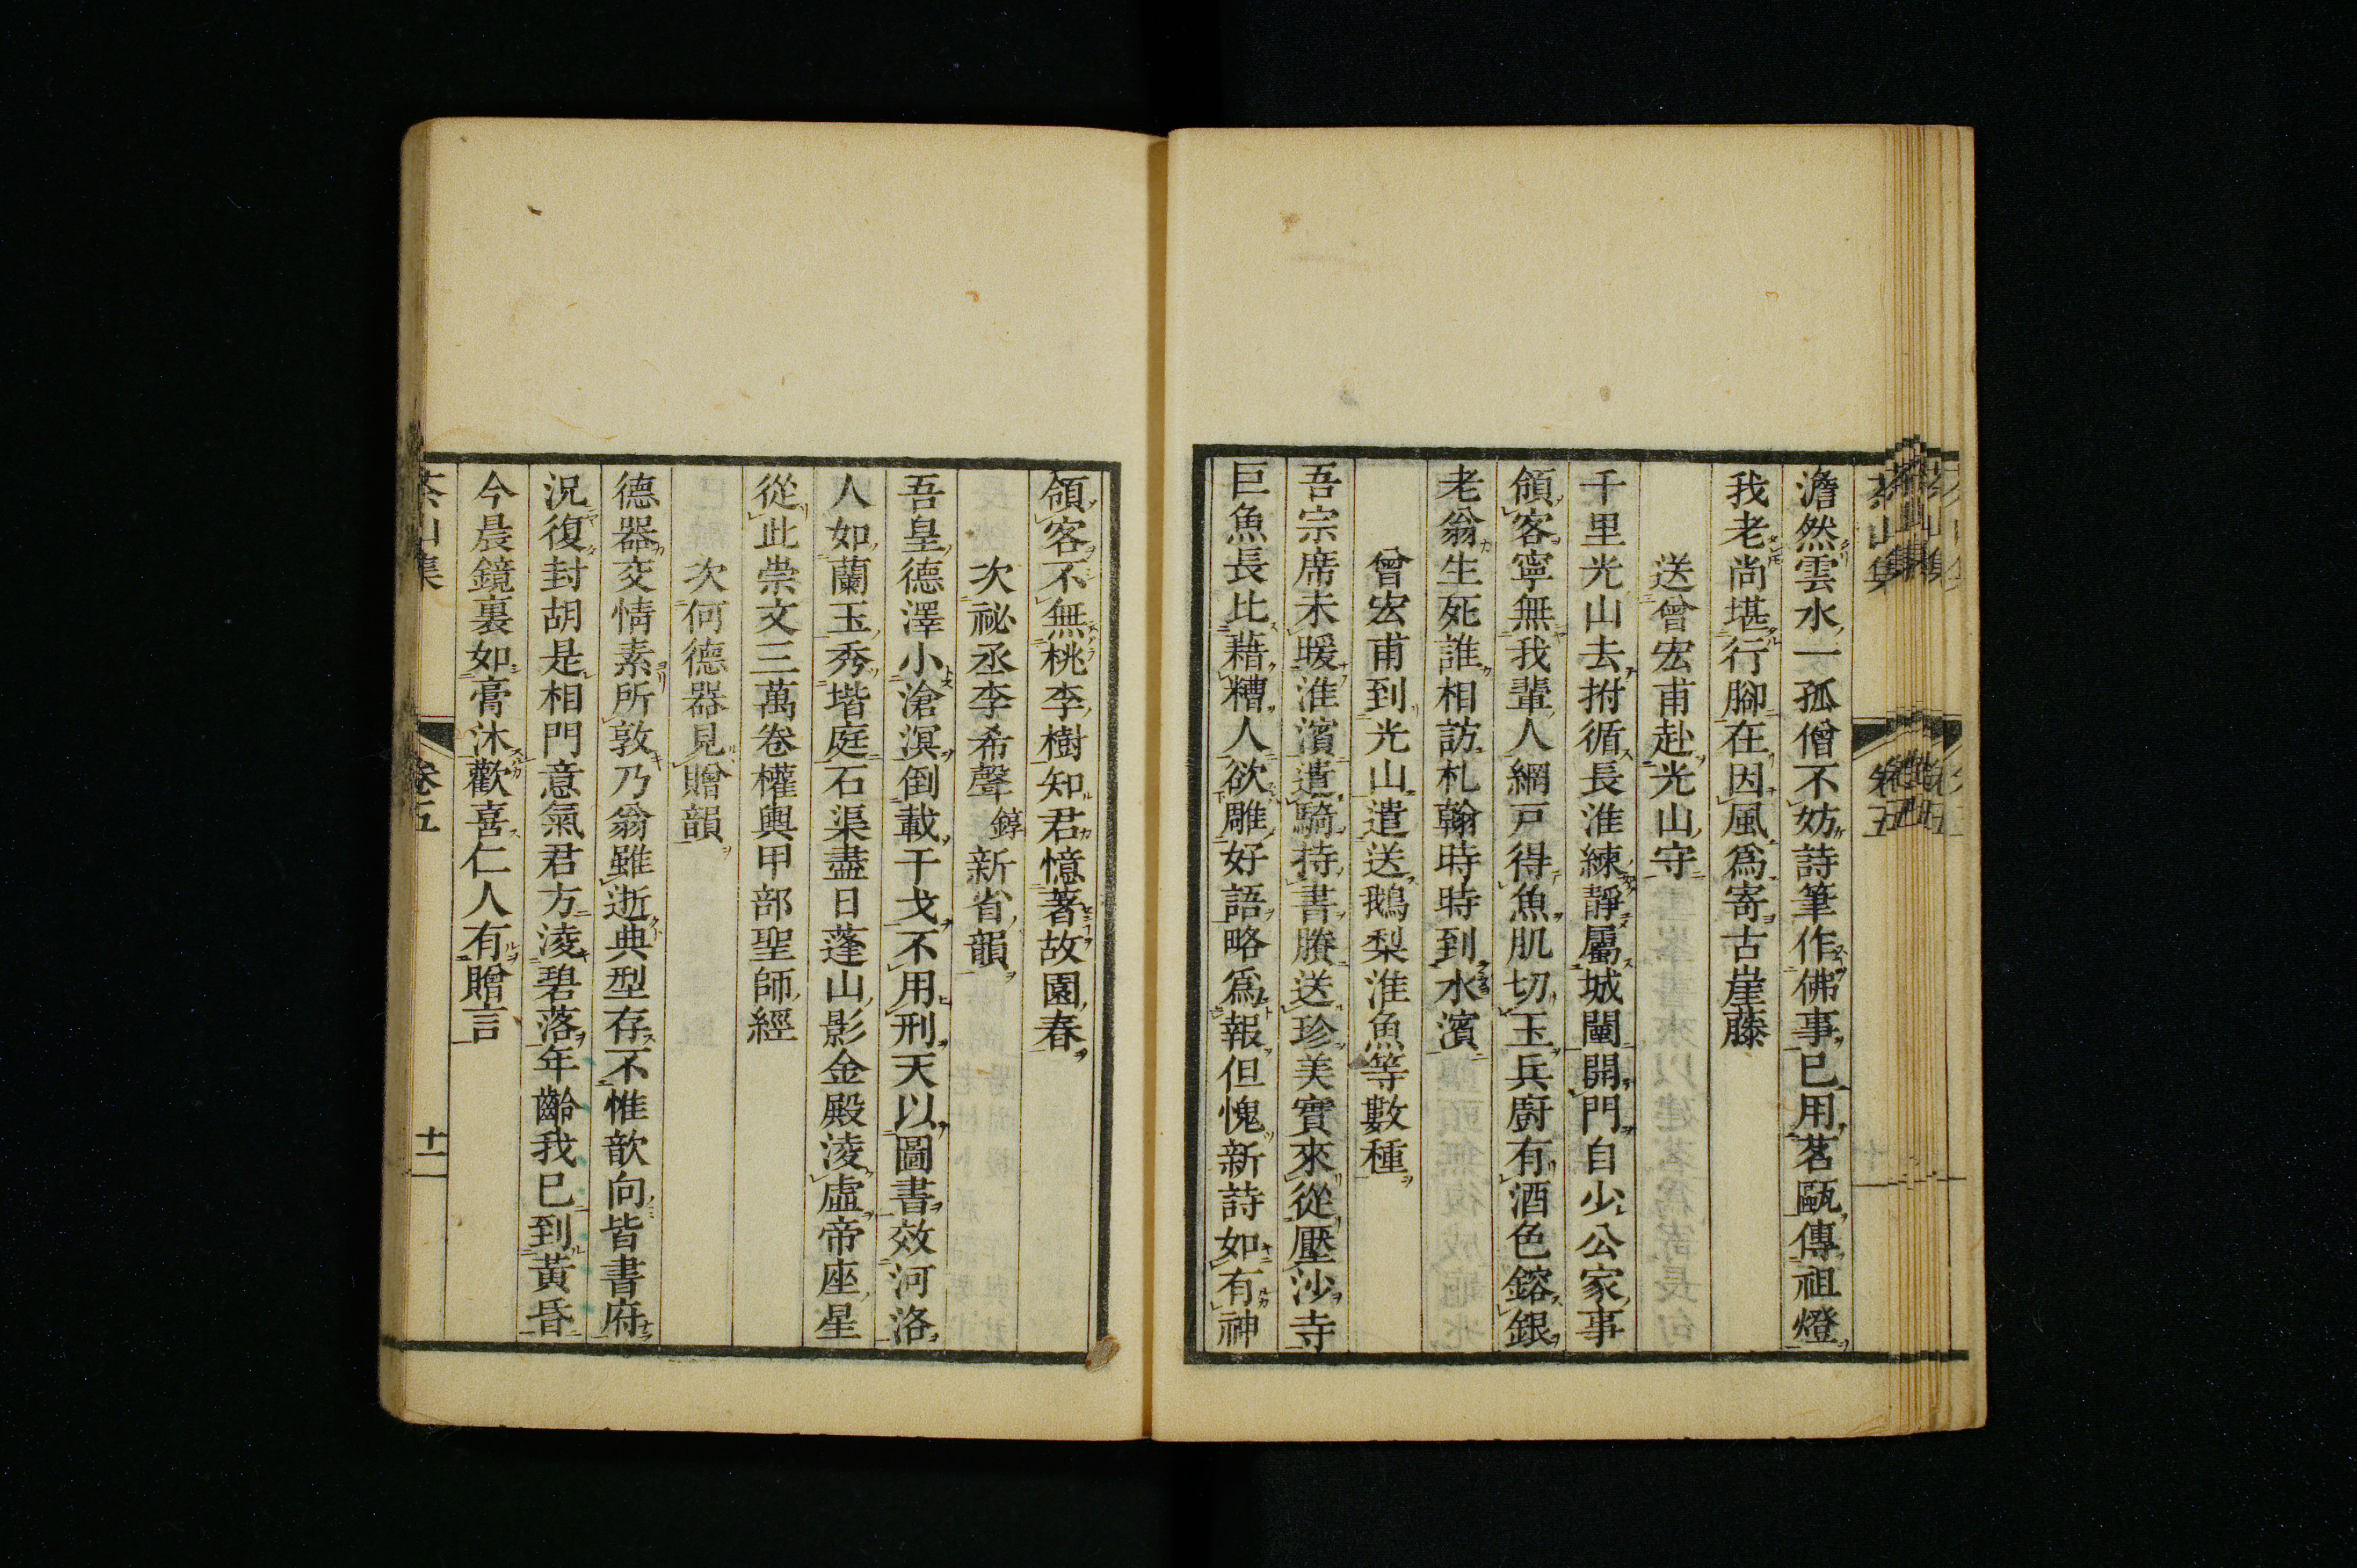 澹然雲水一孤僧不妨詩筆作佛事已用茗甌傳祖燈
我老尚堪行腳在因風爲寄古崖藤
送曾宏甫赴光山守
千里光山去拊循長淮練靜屬城闉開門自少公家事
領客寧無我輩人網戸得魚肌切玉兵廚有酒色鎔銀
老翁生死誰相訪札翰時時到水濱
曾宏甫到光山遣送鵝梨淮魚等數種
吾宗席未暖淮濱遣騎持書賸送珍美實來從壓沙寺
巨魚長比藉糟人欲雕好語略爲報但愧新詩如有神
領客不無桃李樹知君憶著故園春
次祕丞李希聲錞新省韻
吾皇德澤小滄溟倒載干戈不用刑天以圖書效河洛
人如蘭玉秀堦庭石渠盡日蓬山影金殿淩虛帝座星
從此崇文三萬卷權輿甲部聖師經
次何德器見贈韻
德器交情素所敦乃翁雖逝典型存不惟歆向皆書府
況復封胡是相門意氣君方淩碧落年齡我已到黃昏
今晨鏡裏如膏沐歡喜仁人有贈言
茶山集 卷五 十二